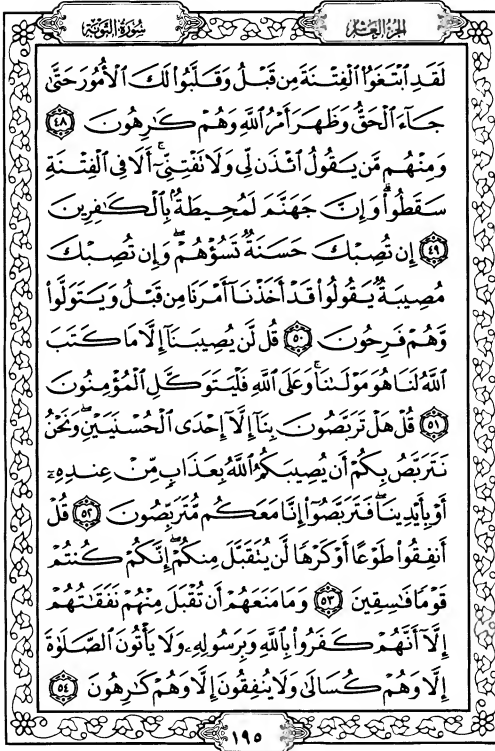 سُورَةُ التَّوْبَةِ
الجُزْءُ العَاشِرُ
لَقَدِ ٱبۡتَغَوُاْ ٱلۡفِتۡنَةَ مِن قَبۡلُ وَقَلَّبُواْ لَكَ ٱلۡأُمُورَ حَتَّىٰ
جَآءَ ٱلۡحَقُّ وَظَهَرَ أَمۡرُ ٱللَّهِ وَهُمۡ كَٰرِهُونَ ٤٨
وَمِنۡهُم مَّن يَقُولُ ٱئۡذَن لِّي وَلَا تَفۡتِنِّيٓۚ أَلَا فِي ٱلۡفِتۡنَةِ
سَقَطُواْۗ وَإِنَّ جَهَنَّمَ لَمُحِيطَةُۢ بِٱلۡكَٰفِرِينَ
٤٩ إِن تُصِبۡكَ حَسَنَةٞ تَسُؤۡهُمۡۖ وَإِن تُصِبۡكَ
مُصِيبَةٞ يَقُولُواْ قَدۡ أَخَذۡنَآ أَمۡرَنَا مِن قَبۡلُ وَيَتَوَلَّواْ
وَّهُمۡ فَرِحُونَ ٥٠ قُل لَّن يُصِيبَنَآ إِلَّا مَا كَتَبَ
ٱللَّهُ لَنَا هُوَ مَوۡلَىٰنَاۚ وَعَلَى ٱللَّهِ فَلۡيَتَوَكَّلِ ٱلۡمُؤۡمِنُونَ
٥١ قُلۡ هَلۡ تَرَبَّصُونَ بِنَآ إِلَّآ إِحۡدَى ٱلۡحُسۡنَيَيۡنِۖ وَنَحۡنُ
نَتَرَبَّصُ بِكُمۡ أَن يُصِيبَكُمُ ٱللَّهُ بِعَذَابٖ مِّنۡ عِندِهِۦٓ
أَوۡ بِأَيۡدِينَاۖ فَتَرَبَّصُوٓاْ إِنَّا مَعَكُم مُّتَرَبِّصُونَ ٥٢ قُلۡ
أَنفِقُواْ طَوۡعًا أَوۡ كَرۡهٗا لَّن يُتَقَبَّلَ مِنكُمۡۖ إِنَّكُمۡ كُنتُمۡ
قَوۡمٗا فَٰسِقِينَ ٥٣ وَمَا مَنَعَهُمۡ أَن تُقۡبَلَ مِنۡهُمۡ نَفَقَٰتُهُمۡ
إِلَّآ أَنَّهُمۡ كَفَرُواْ بِٱللَّهِ وَبِرَسُولِهِۦ وَلَا يَأۡتُونَ ٱلصَّلَوٰةَ
إِلَّا وَهُمۡ كُسَالَىٰ وَلَا يُنفِقُونَ إِلَّا وَهُمۡ كَٰرِهُونَ ٥٤
١٩٥